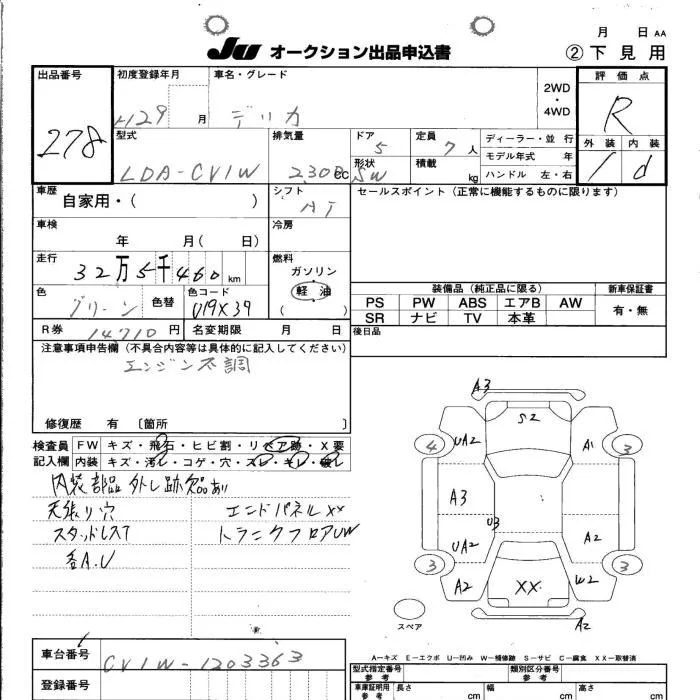 月 日 AA
JU オークション出品申込書 ② 下見用
出品番号 初度登録年月 車名・グレード 2WD・4WD 評価点
278 H29 月 デリカ R
型式 排気量 ドア 定員 ディーラー・並行 外装 内装
LDA-CV1W 2300cc 5 7人 モデル年式 年 1 d
形状 SW 積載 kg ハンドル 左・右
車歴 自家用・( ) シフト AT セールスポイント(正常に機能するものに限ります)
車検 年 月( 日) 冷房
走行 32万5千460km 燃料 ガソリン 軽油 ( )
色 グリーン 色替 色コード U19X39
装備品(純正品に限る) 新車保証書
PS PW ABS エアB AW 有・無
SR ナビ TV 本革
R券 14710円 名変期限 月 日 後日品
注意事項申告欄(不具合内容等は具体的に記入してください)
エンジン不調
修復歴 有 〔箇所 〕
検査員 FW キズ・飛石・ヒビ割・リペア跡・X要
記入欄 内装 キズ・汚レ・コゲ・穴・スレ・キレ・破レ
内装部品 外し跡欠品あり
天張り穴 エンドパネルXX
スタッドレスT トランクフロアUW
各A.U
A3
S2
4 UA2 A1 3
A3
U3
UA2 A2
3 3
A2 XX W2
スペア A2
A-キズ E-エクボ U-凹み W-補修跡 S-サビ C-腐食 XX-取替済
車台番号 CV1W-1203363
登録番号
型式指定番号 参考 類別区分番号 参考
車庫証明用 参考 長さ cm 幅 cm 高さ cm